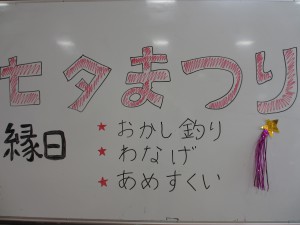 七夕まつり
縁日
★おかし釣り
★わなげ
★あめすくい